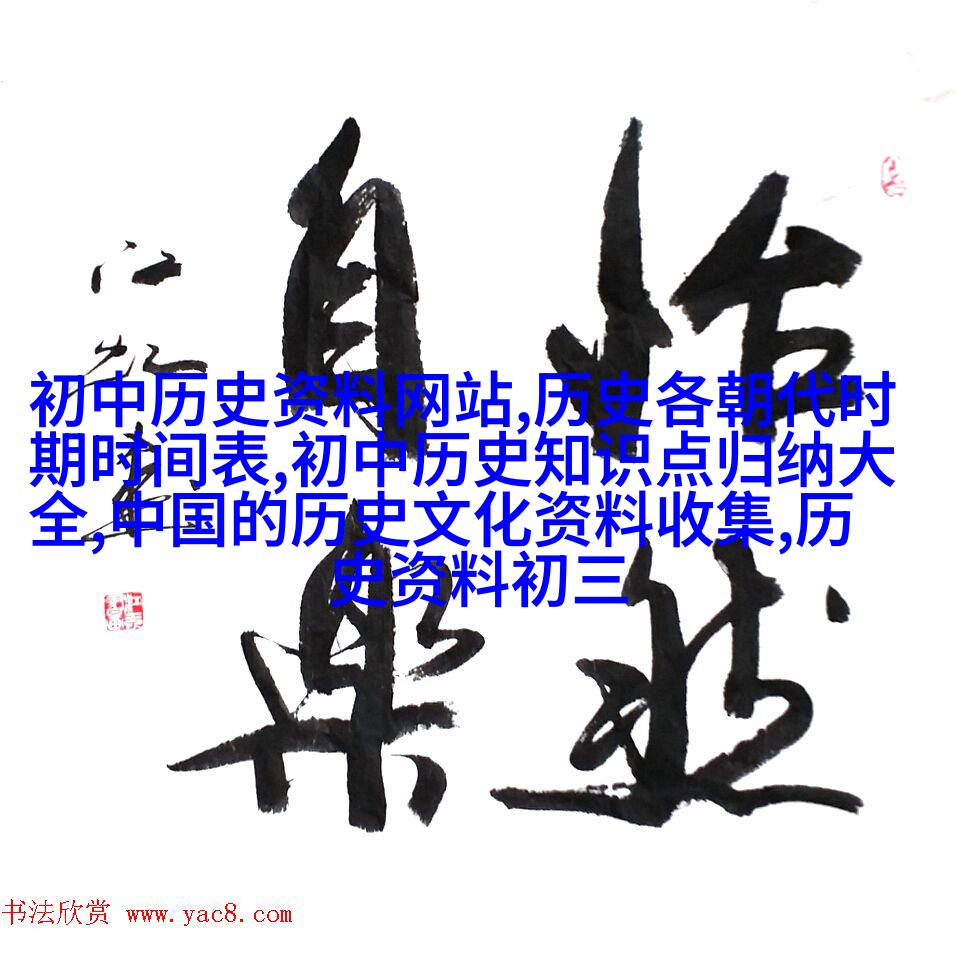 怡然
自樂
江
初中历史资料网站,历史各朝代时
期时间表,初中历史知识点归纳大
全,中国的历史文化资料收集,历
史资料初三
书法欣赏 www.yac8.com